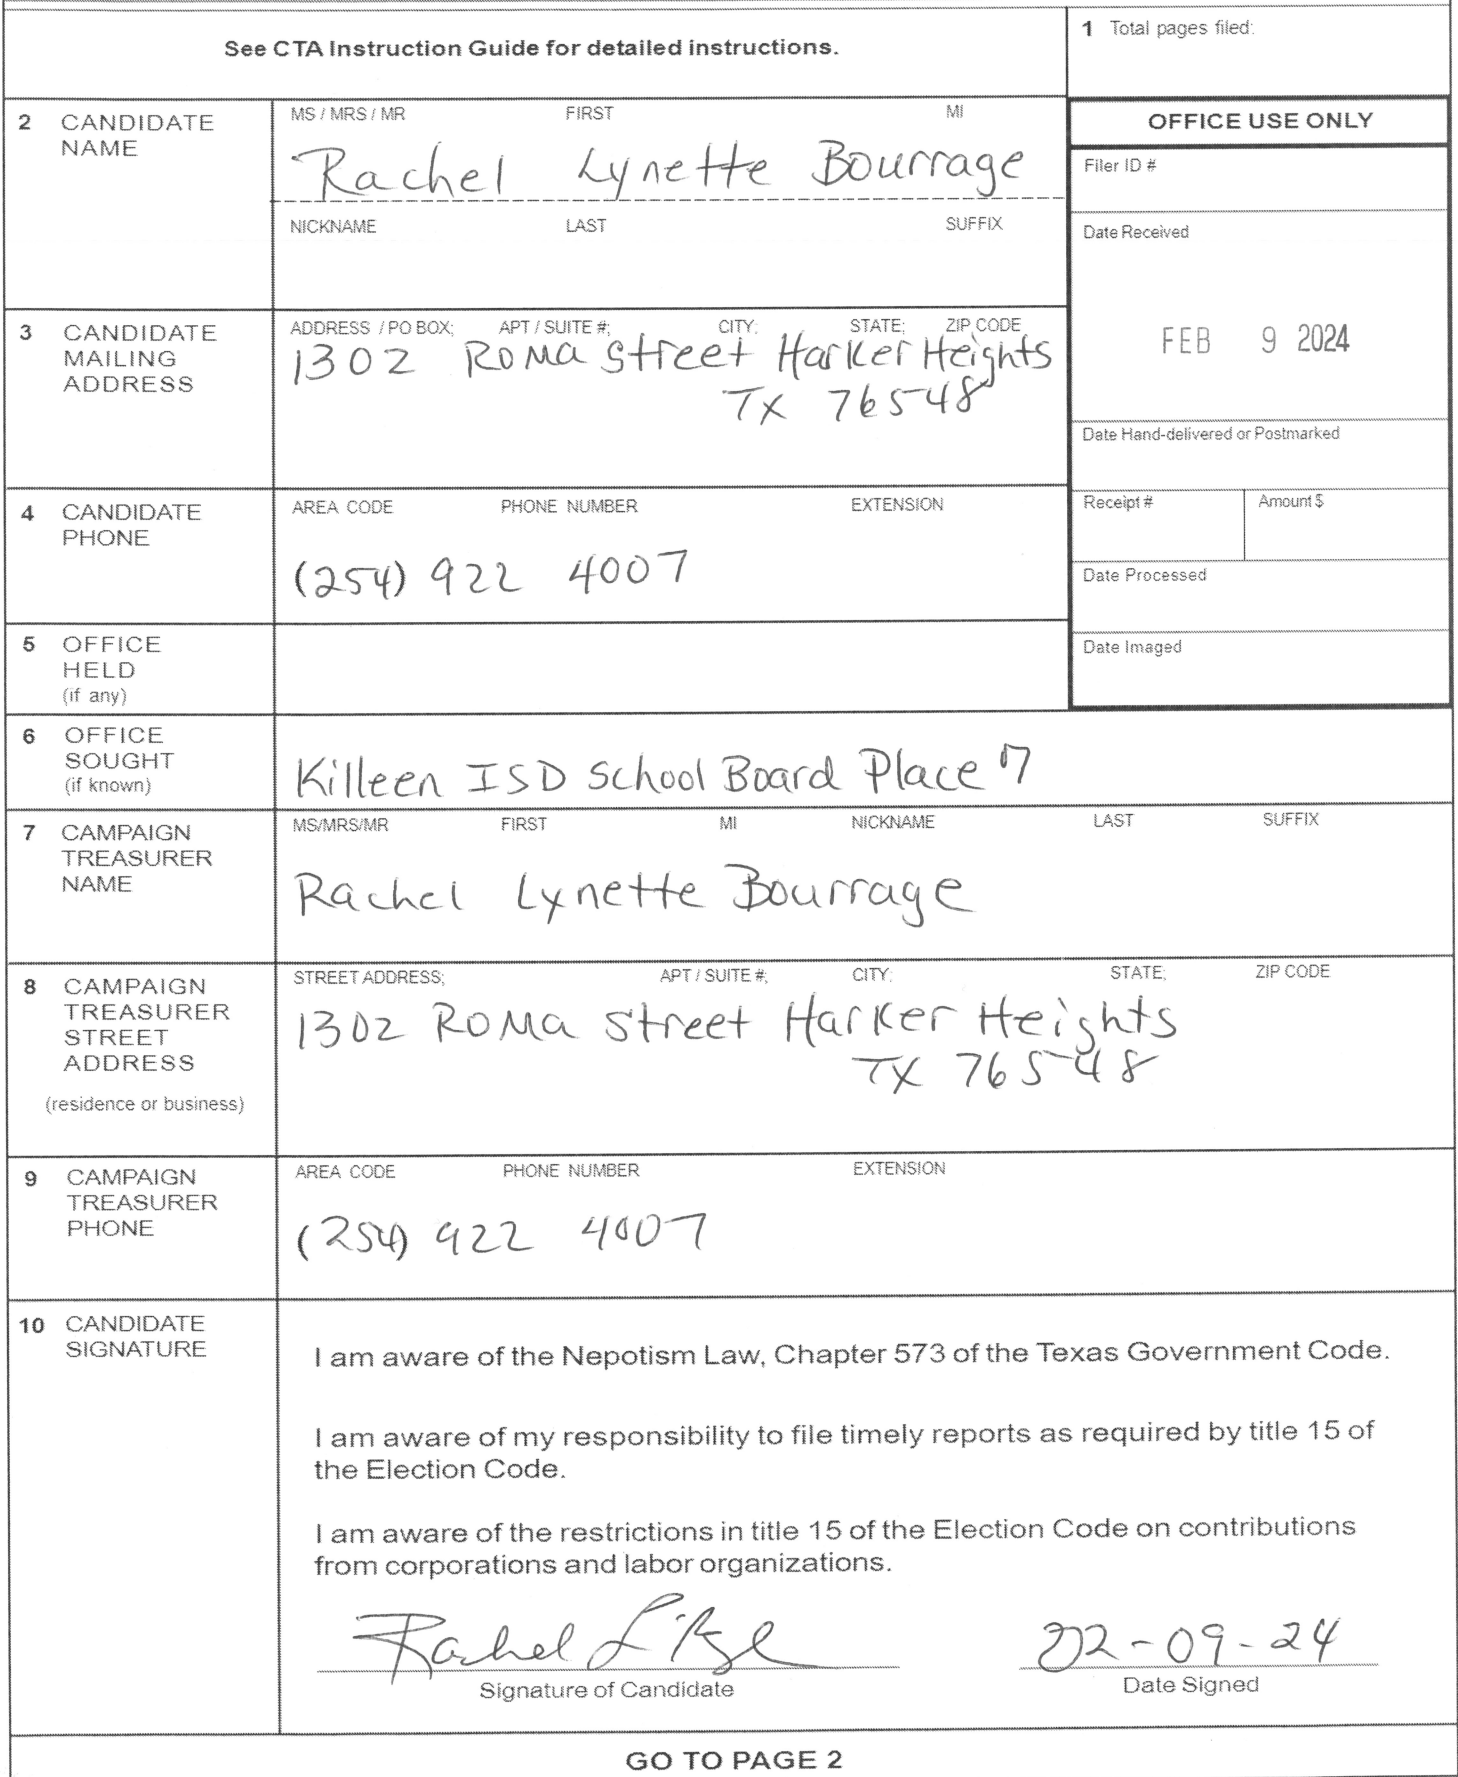 See CTA Instruction Guide for detailed instructions.
1 Total pages filed:
2 CANDIDATE NAME
MS / MRS / MR FIRST MI
Rachel Lynette Bourrage
NICKNAME LAST SUFFIX
OFFICE USE ONLY
Filer ID #
Date Received
FEB 9 2024
3 CANDIDATE MAILING ADDRESS
ADDRESS / PO BOX; APT / SUITE #; CITY; STATE; ZIP CODE
1302 Roma Street Harker Heights
TX 76548
Date Hand-delivered or Postmarked
4 CANDIDATE PHONE
AREA CODE PHONE NUMBER EXTENSION
(254) 922 4007
Receipt # Amount $
Date Processed
Date Imaged
5 OFFICE HELD (if any)
6 OFFICE SOUGHT (if known)
Killeen ISD School Board Place 7
7 CAMPAIGN TREASURER NAME
MS/MRS/MR FIRST MI NICKNAME LAST SUFFIX
Rachel Lynette Bourrage
8 CAMPAIGN TREASURER STREET ADDRESS
(residence or business)
STREET ADDRESS; APT / SUITE #; CITY; STATE; ZIP CODE
1302 Roma Street Harker Heights
TX 76548
9 CAMPAIGN TREASURER PHONE
AREA CODE PHONE NUMBER EXTENSION
(254) 922 4007
10 CANDIDATE SIGNATURE
I am aware of the Nepotism Law, Chapter 573 of the Texas Government Code.
I am aware of my responsibility to file timely reports as required by title 15 of
the Election Code.
I am aware of the restrictions in title 15 of the Election Code on contributions
from corporations and labor organizations.
Rachel L 02-09-24
Signature of Candidate Date Signed
GO TO PAGE 2